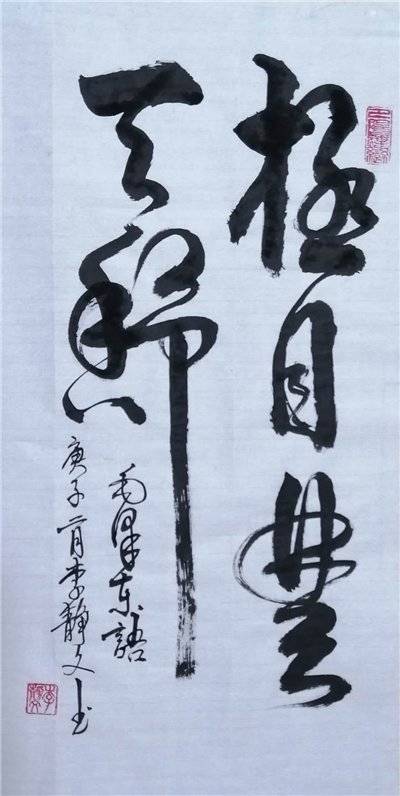 極目楚
天舒
毛澤东語
庚子二月李静文书